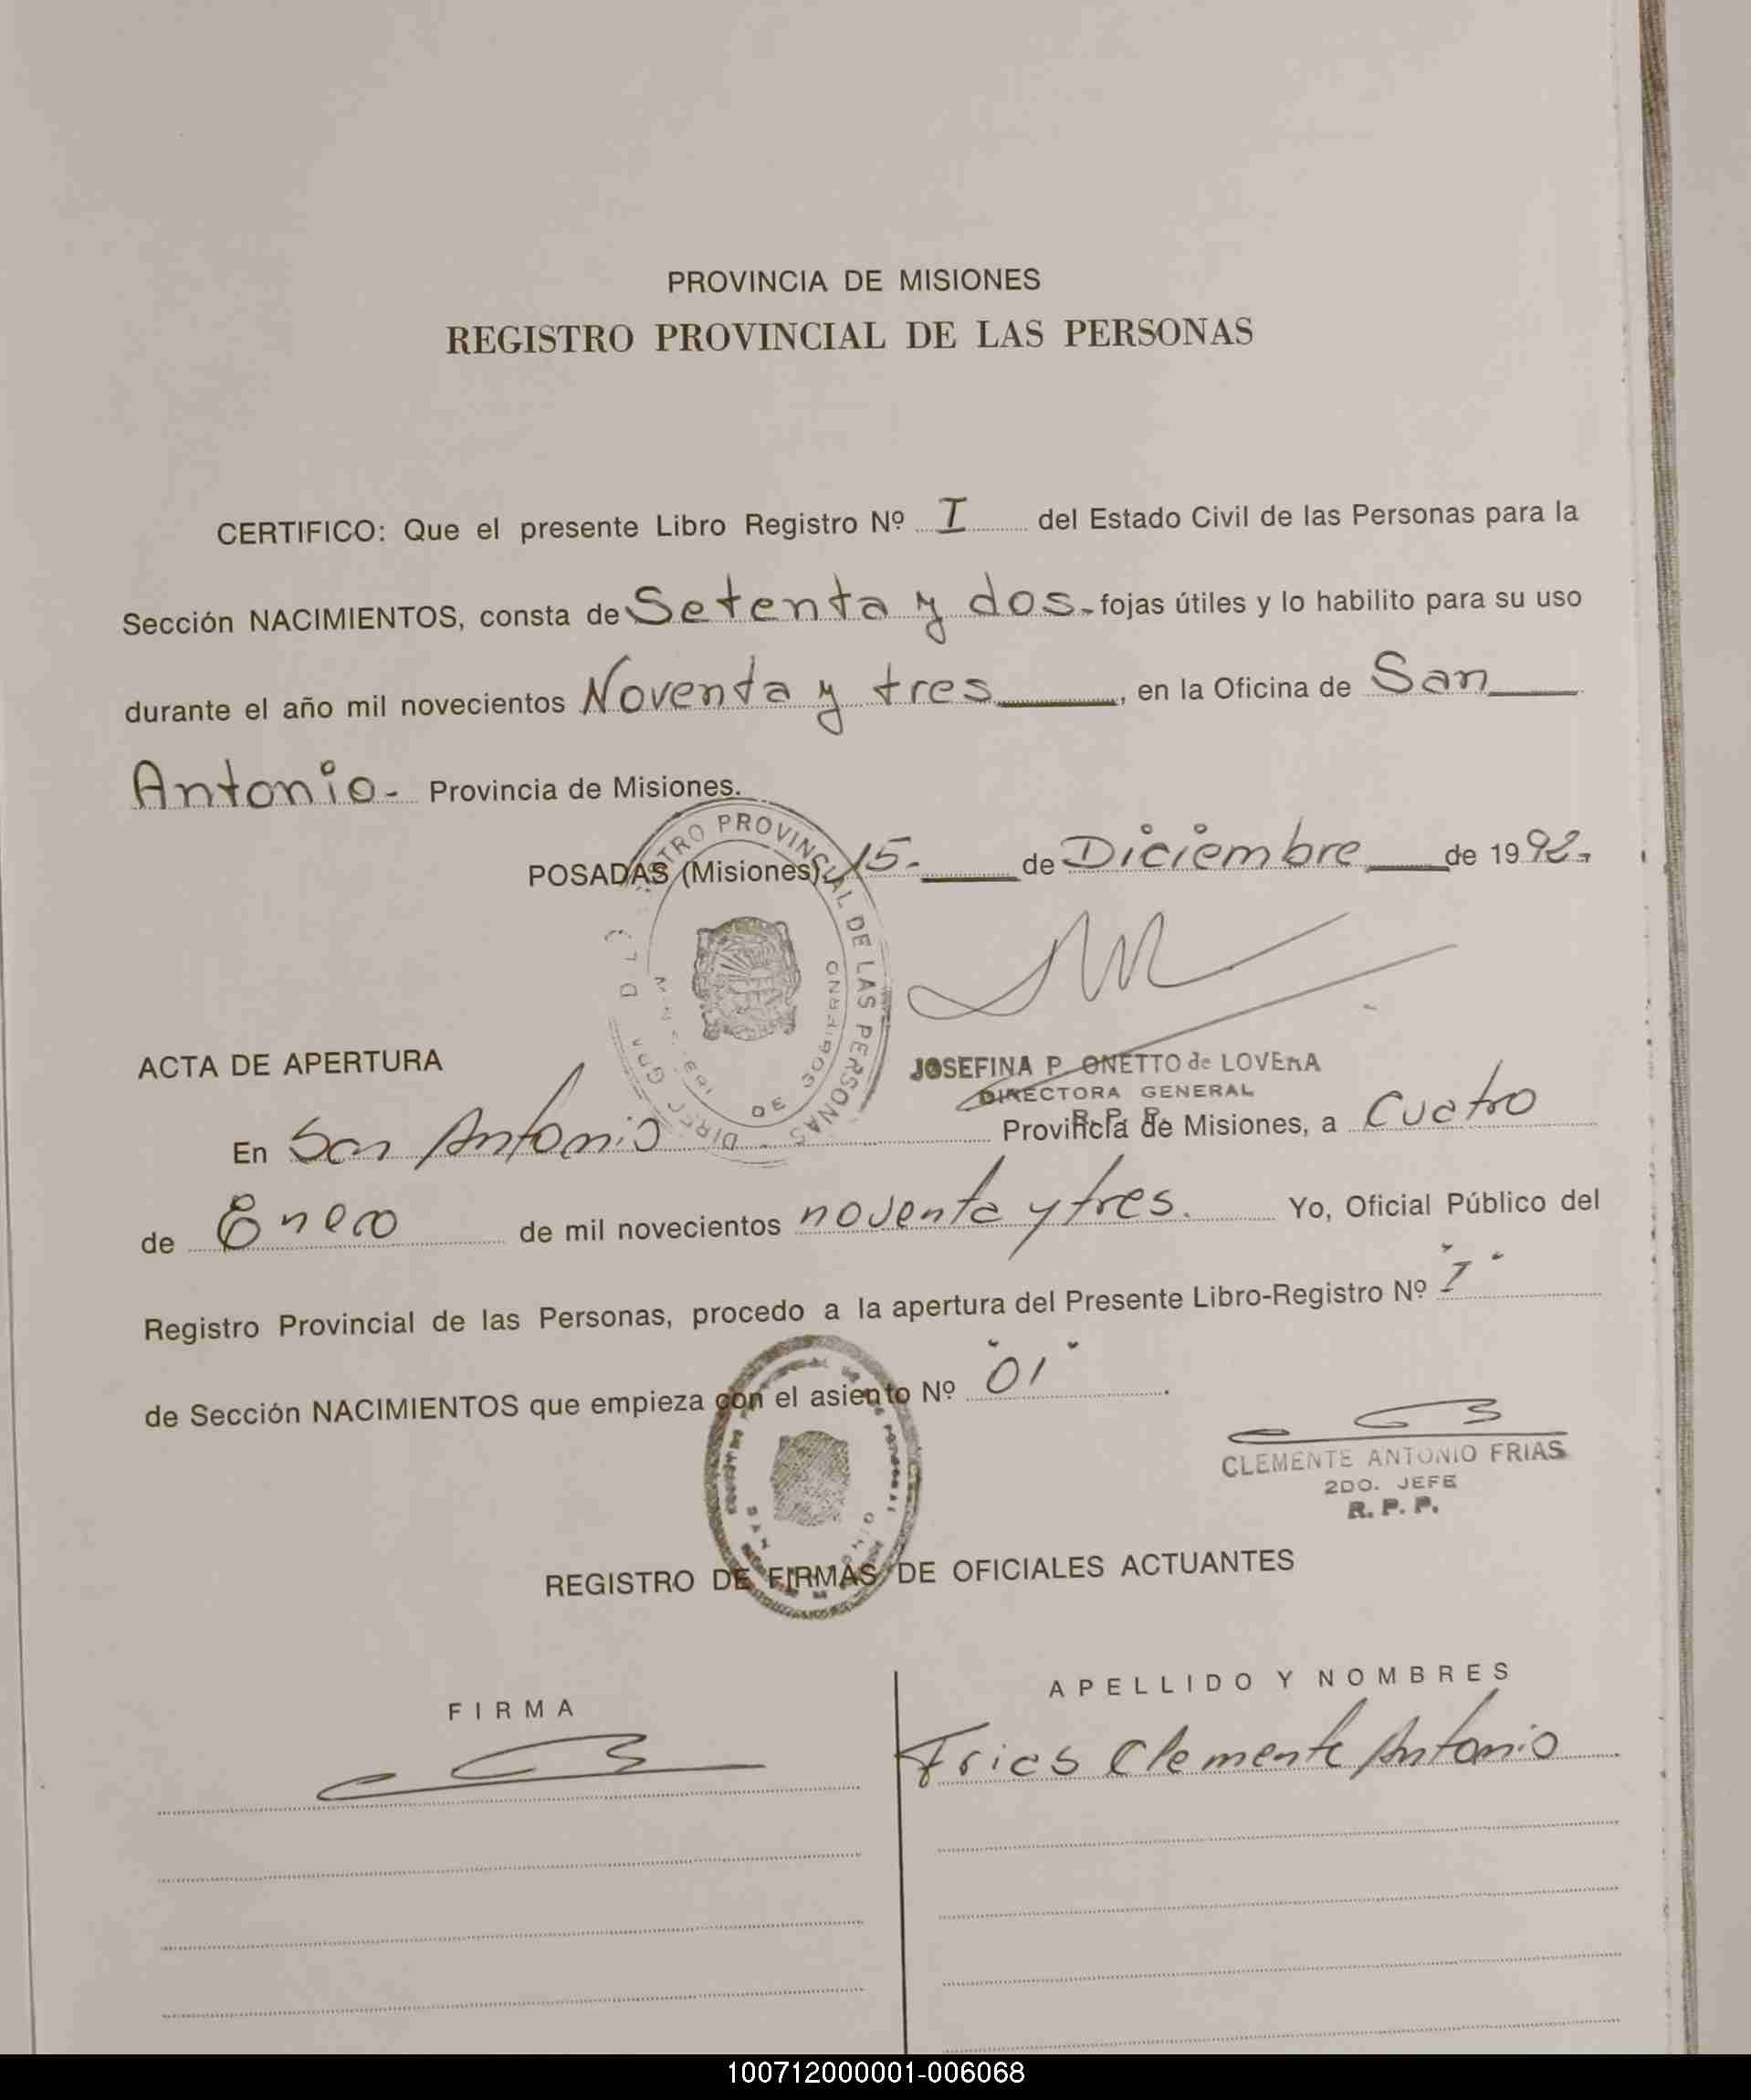 PROVINCIA DE MISIONES
REGISTRO PROVINCIAL DE LAS PERSONAS
CERTIFICO: Que el presente Libro Registro Nº I del Estado Civil de las Personas para la
Sección NACIMIENTOS, consta de Setenta y dos.- fojas útiles y lo habilito para su uso
durante el año mil novecientos Noventa y tres, en la Oficina de San
Antonio.- Provincia de Misiones.
POSADAS (Misiones), 15.- de Diciembre de 1992.-
REGISTRO PROVINCIAL DE LAS PERSONAS
DE GOBIERNO
JOSEFINA P. ONETTO de LOVERA
DIRECTORA GENERAL
R. P. P.
ACTA DE APERTURA
En San Antonio Provincia de Misiones, a Cuatro
de Enero de mil novecientos noventa y tres. Yo, Oficial Público del
Registro Provincial de las Personas, procedo a la apertura del Presente Libro-Registro Nº "I"
de Sección NACIMIENTOS que empieza con el asiento Nº "01".
CLEMENTE ANTONIO FRIAS
2DO. JEFE
R. P. P.
REGISTRO DE FIRMAS DE OFICIALES ACTUANTES
FIRMA
APELLIDO Y NOMBRES
Frias Clemente Antonio
100712000001-006068